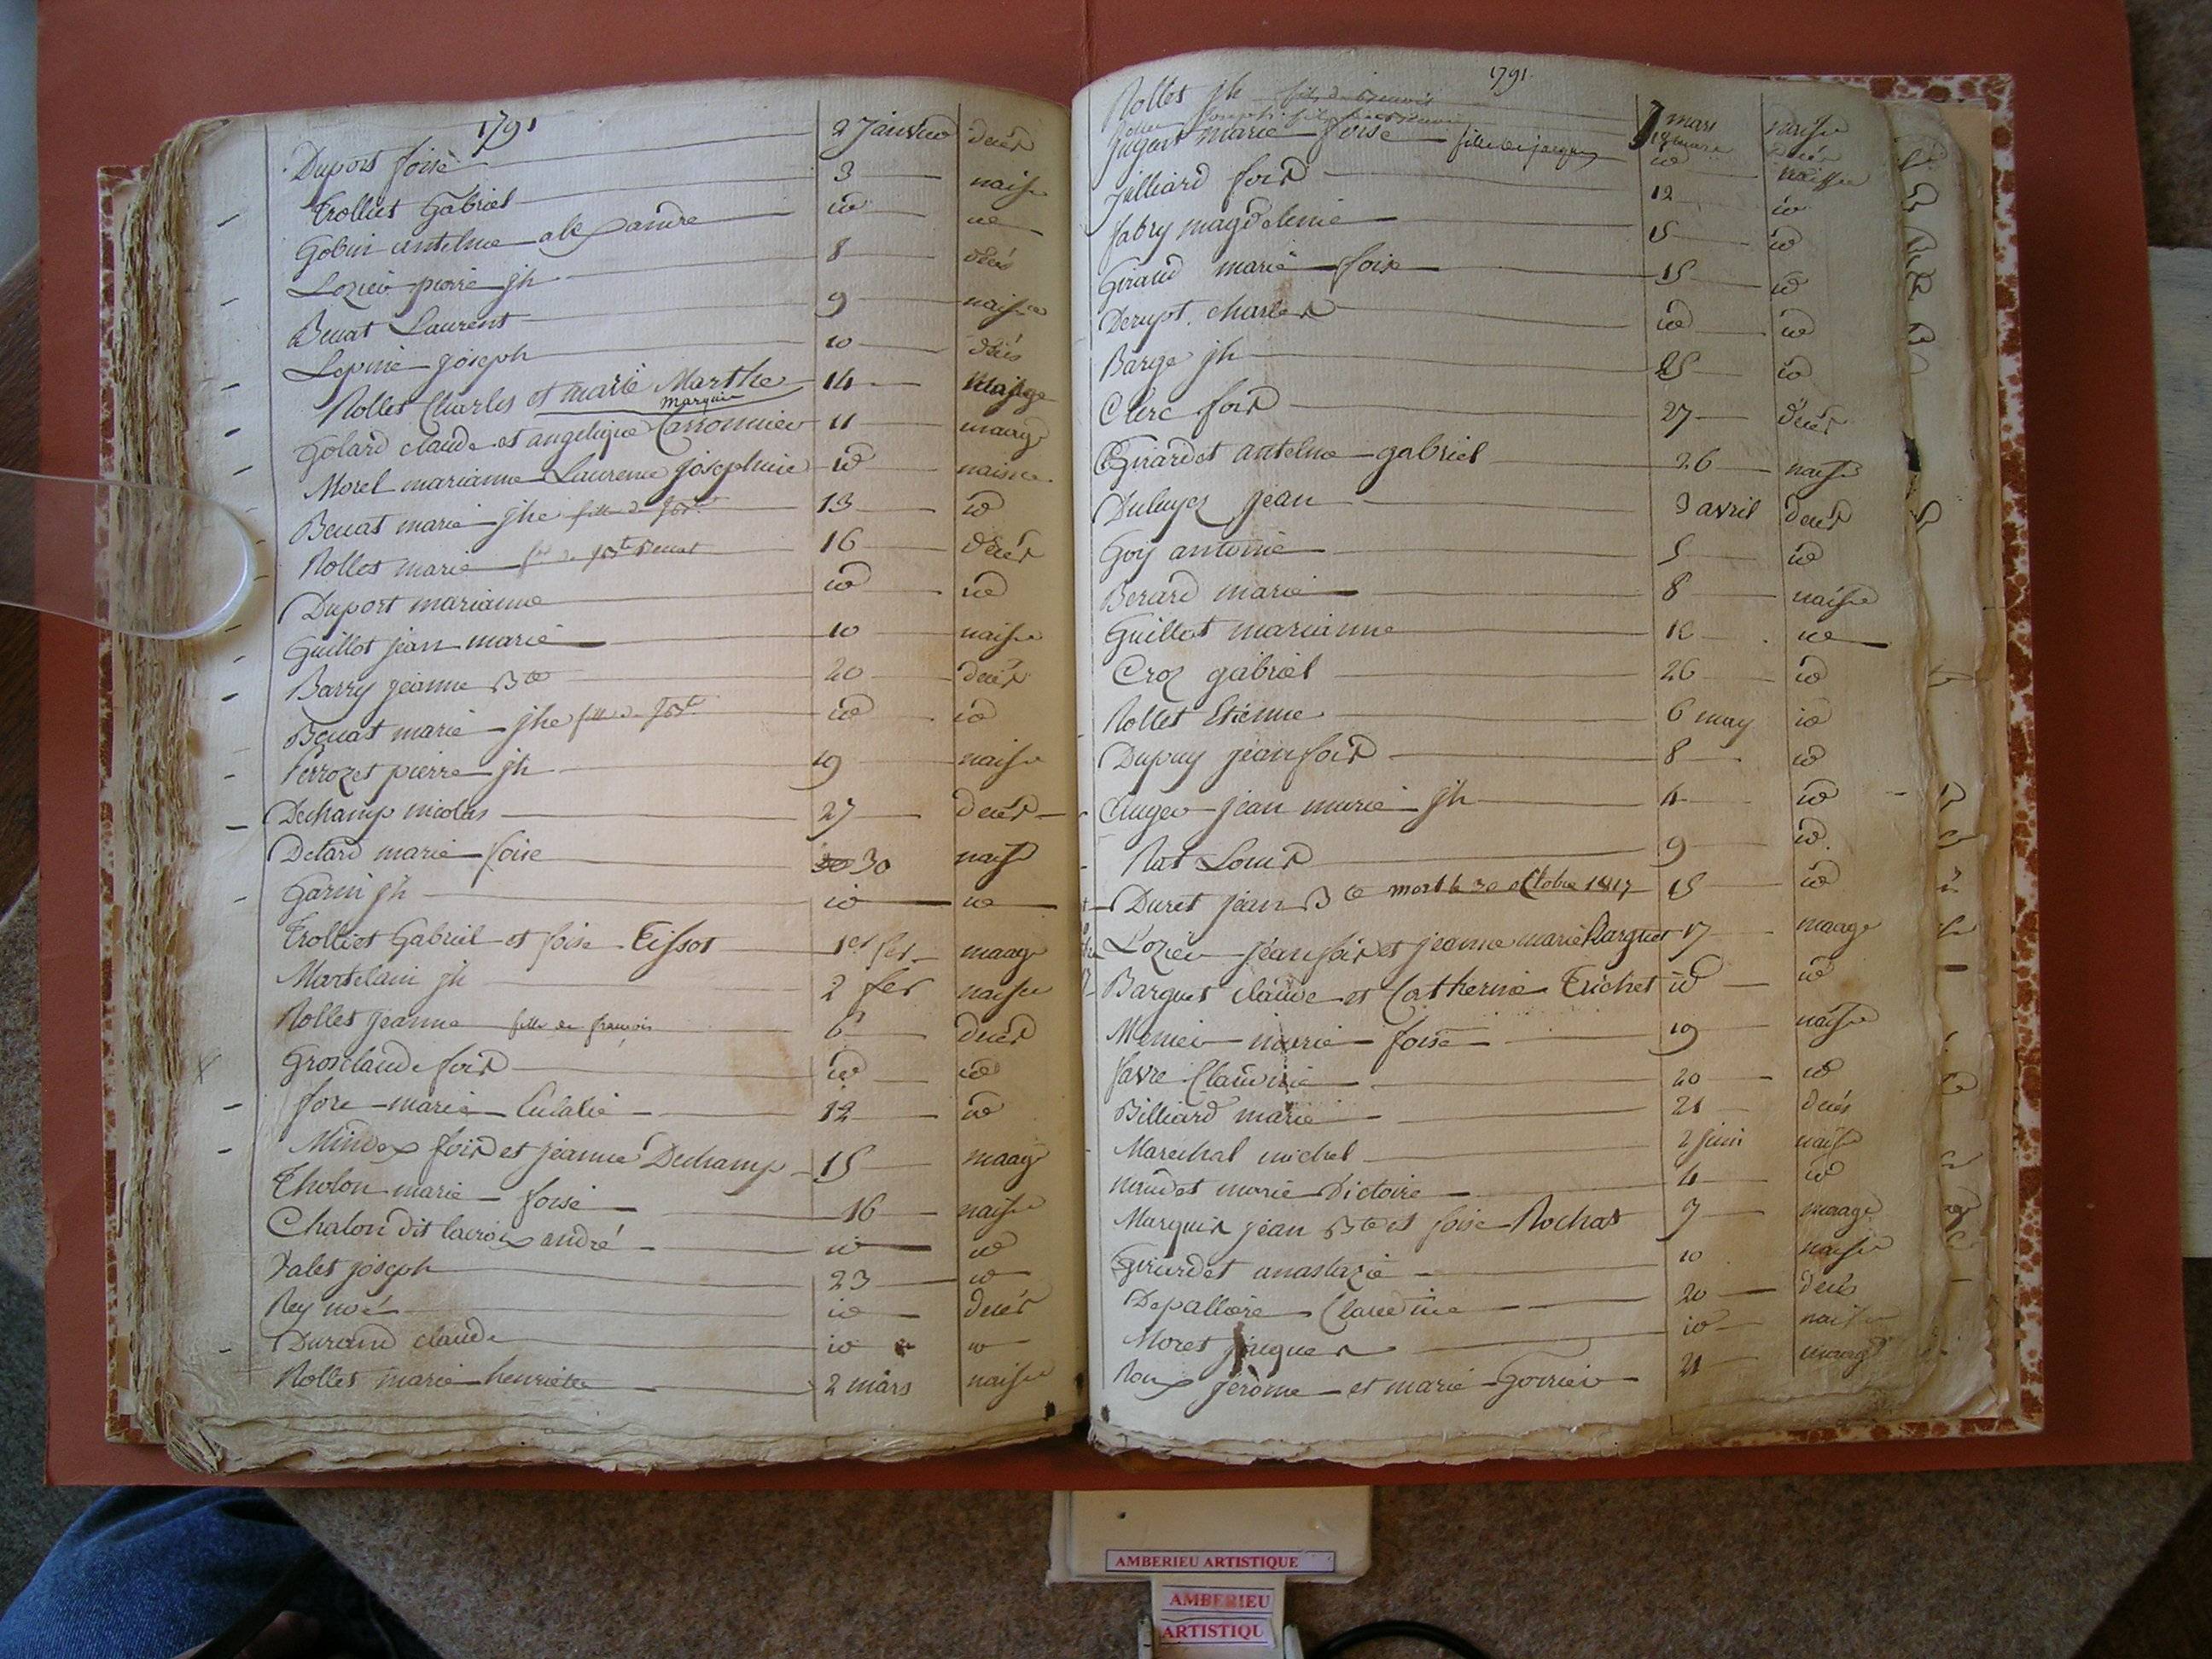 1791
Duport foise 2 Janvier decès
Trolliet Gabriel 3 naisce
Gobin antelme alexandre id id
Lozier pierre jh 8 décès
Beuat Laurent 9 naisce
Lepine joseph 10 décès
Rollet Charles et marie Marthe 14 mariage
marquis
Golard claude et angelique Carronnier 11 maage
Morel marianne Laurence josephine id naisce
Beuat marie jhe fille de jBte 13 id
Rollet marie fe de jBte Beuat 16 décès
Duport marianne id id
Guillot jean marie 10 naisce
Barry jeanne Bte 20 decès
Beuat marie jhe fille de jBte id id
Perrozet pierre jh 19 naisce
Dechamp nicolas 27 decès
Detard marie foise 30 naisce
Garin jh id id
Trolliet Gabriel et foise Tissot 1er fer maage
Martelain jh 2 fer naisce
Rollet jeanne fille de françois 6 decès
Grosclaude fois id id
fore marie Eulalie 12 id
Mindex fois et jeanne Dechamp 15 maage
Tholon marie foise 16 naisce
Chalon dit lacroix andré id id
Valet joseph 23 id
Rey noé id decès
Durand claude id id
Rollet marie henriette 2 mars naisce
1791
Rollet jh fils de Benoit 7 mars naisce
Rollet Joseph fils de Benoit 18 mars decès
Jugart marie foise fille de jacques id naisse
Jilliard fois 12 id
fabry magdelenne 15 id
Giraud marie foise 15 id
Derupt charles id id
Barge jh 25 id
Clerc fois 27 décès
Girardet antelme gabriel 26 naisce
Duluyez jean 3 avril decès
Goy antoine 5 id
Berard marie 8 naisce
Guillot marianne 12 id
Croz gabriel 26 id
Rollet Etienne 6 may id
Dupuy jean fois 8 id
Auger jean marie jh 4 id
Rat Louis 9 id
Duret jean Bte mort le 30 octobre 1817 15 id
Lozier jean fois et jeanne marie Rarguet 17 maage
Barguet claude et Catherine Trichet id id
Menier marie foise 19 naisce
favre Claudine 20 id
Billiard marie 21 decès
Marechal michel 2 juin naisce
naudet marie Victoire 4 id
Marquis jean Bte et foise Rochat 7 maage
Girardet anastazie 10 naisce
Depallière Claudine 20 decès
Moret jacques id naisce
Roux jerôme et marie Gorrier 21 maage
AMBERIEU ARTISTIQUE
AMBERIEU
ARTISTIQU